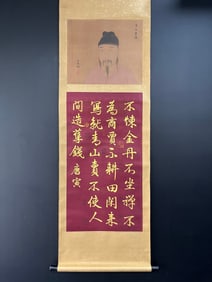 不煉金丹不坐禪不
為商賈不耕田閑來
寫就青山賣不使人
間造孽錢 唐寅